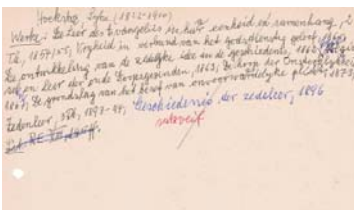 Hoekstra, Sytse (1822-1900)
Werke: De leer des Evangelies in hare eenheid en samenhang, 2
Td, 1854/55; Vrijheid in verband van het godsdienstig geloof,
De ontwikkeling van de zedelijke idee in de geschiedenis, 1862;
en leer der oude Doopsgezinden, 1863; De hoop der Onsterfelijkheid
1867; De grondslag van het besef van onvoorwaardelijke plicht, 1873
Zedenleer, 3 Td, 1894; Geschiedenis der zedeleer, 1896